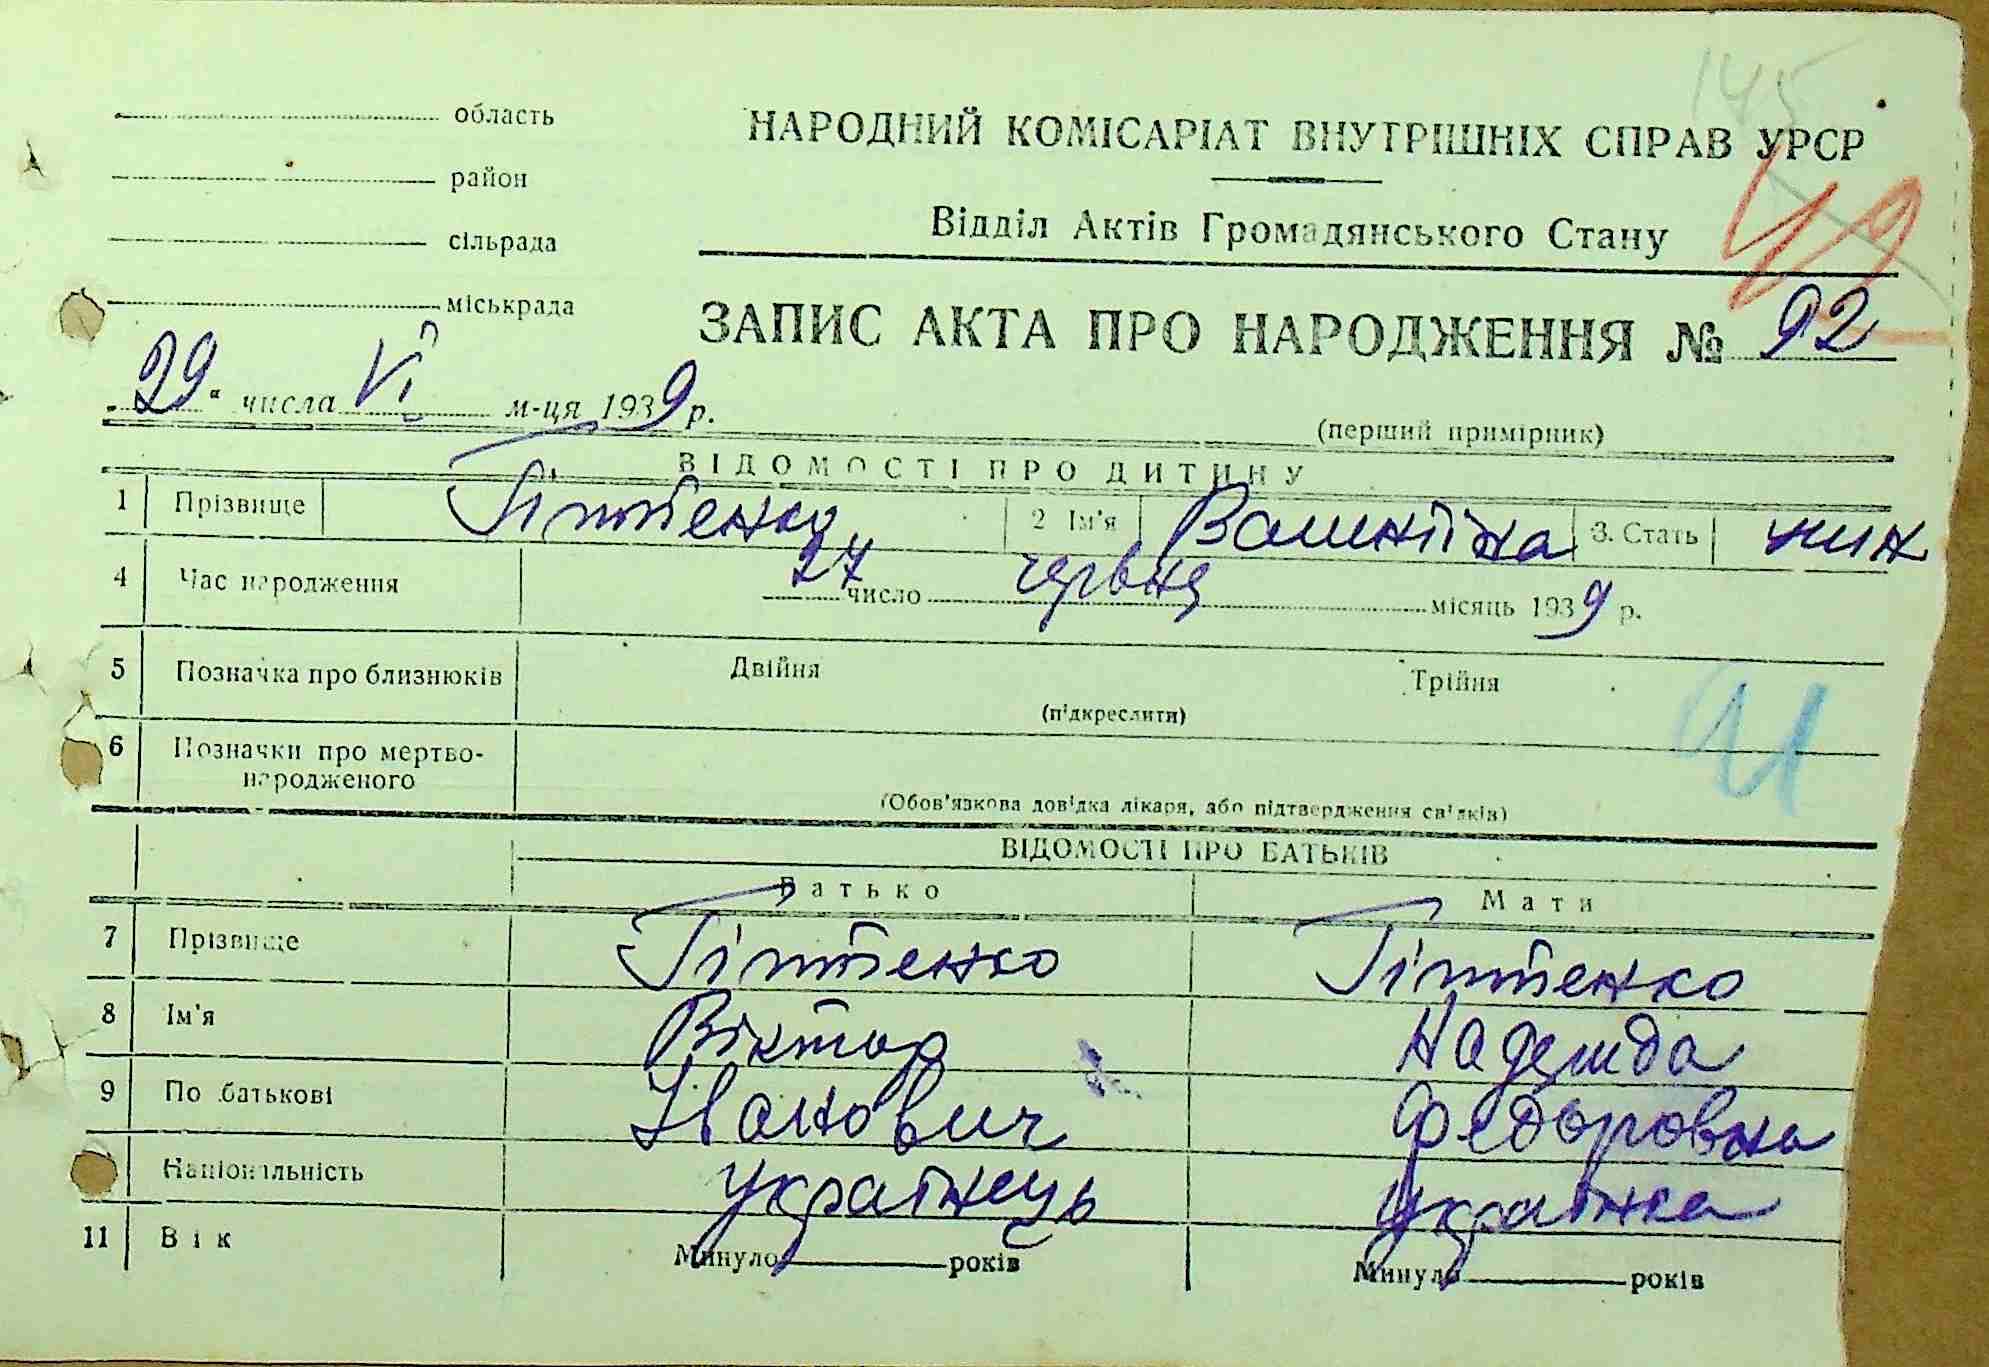 145
область
НАРОДНИЙ КОМІСАРІАТ ВНУТРІШНІХ СПРАВ УРСР
район
49
Відділ Актів Громадянського Стану
сільрада
міськрада
ЗАПИС АКТА ПРО НАРОДЖЕННЯ № 92
„29“ числа VI м-ця 1939 р.
(перший примірник)
ВІДОМОСТІ ПРО ДИТИНУ
1 Прізвище Гіптенко 2 Ім'я Валентіна 3. Стать жін
4 Час народження 27 число червня місяць 1939 р.
5 Позначка про близнюків Двійня Трійня
(підкреслити)
6 Позначки про мертво-
народженого
(Обов'язкова довідка лікаря, або підтвердження свідків)
ВІДОМОСТІ ПРО БАТЬКІВ
Батько Мати
7 Прізвище Гіптенко Гіптенко
8 Ім'я Віктор Надежда
9 По батькові Іванович Федоровна
Національність українець українка
11 Вік Минуло років Минуло років